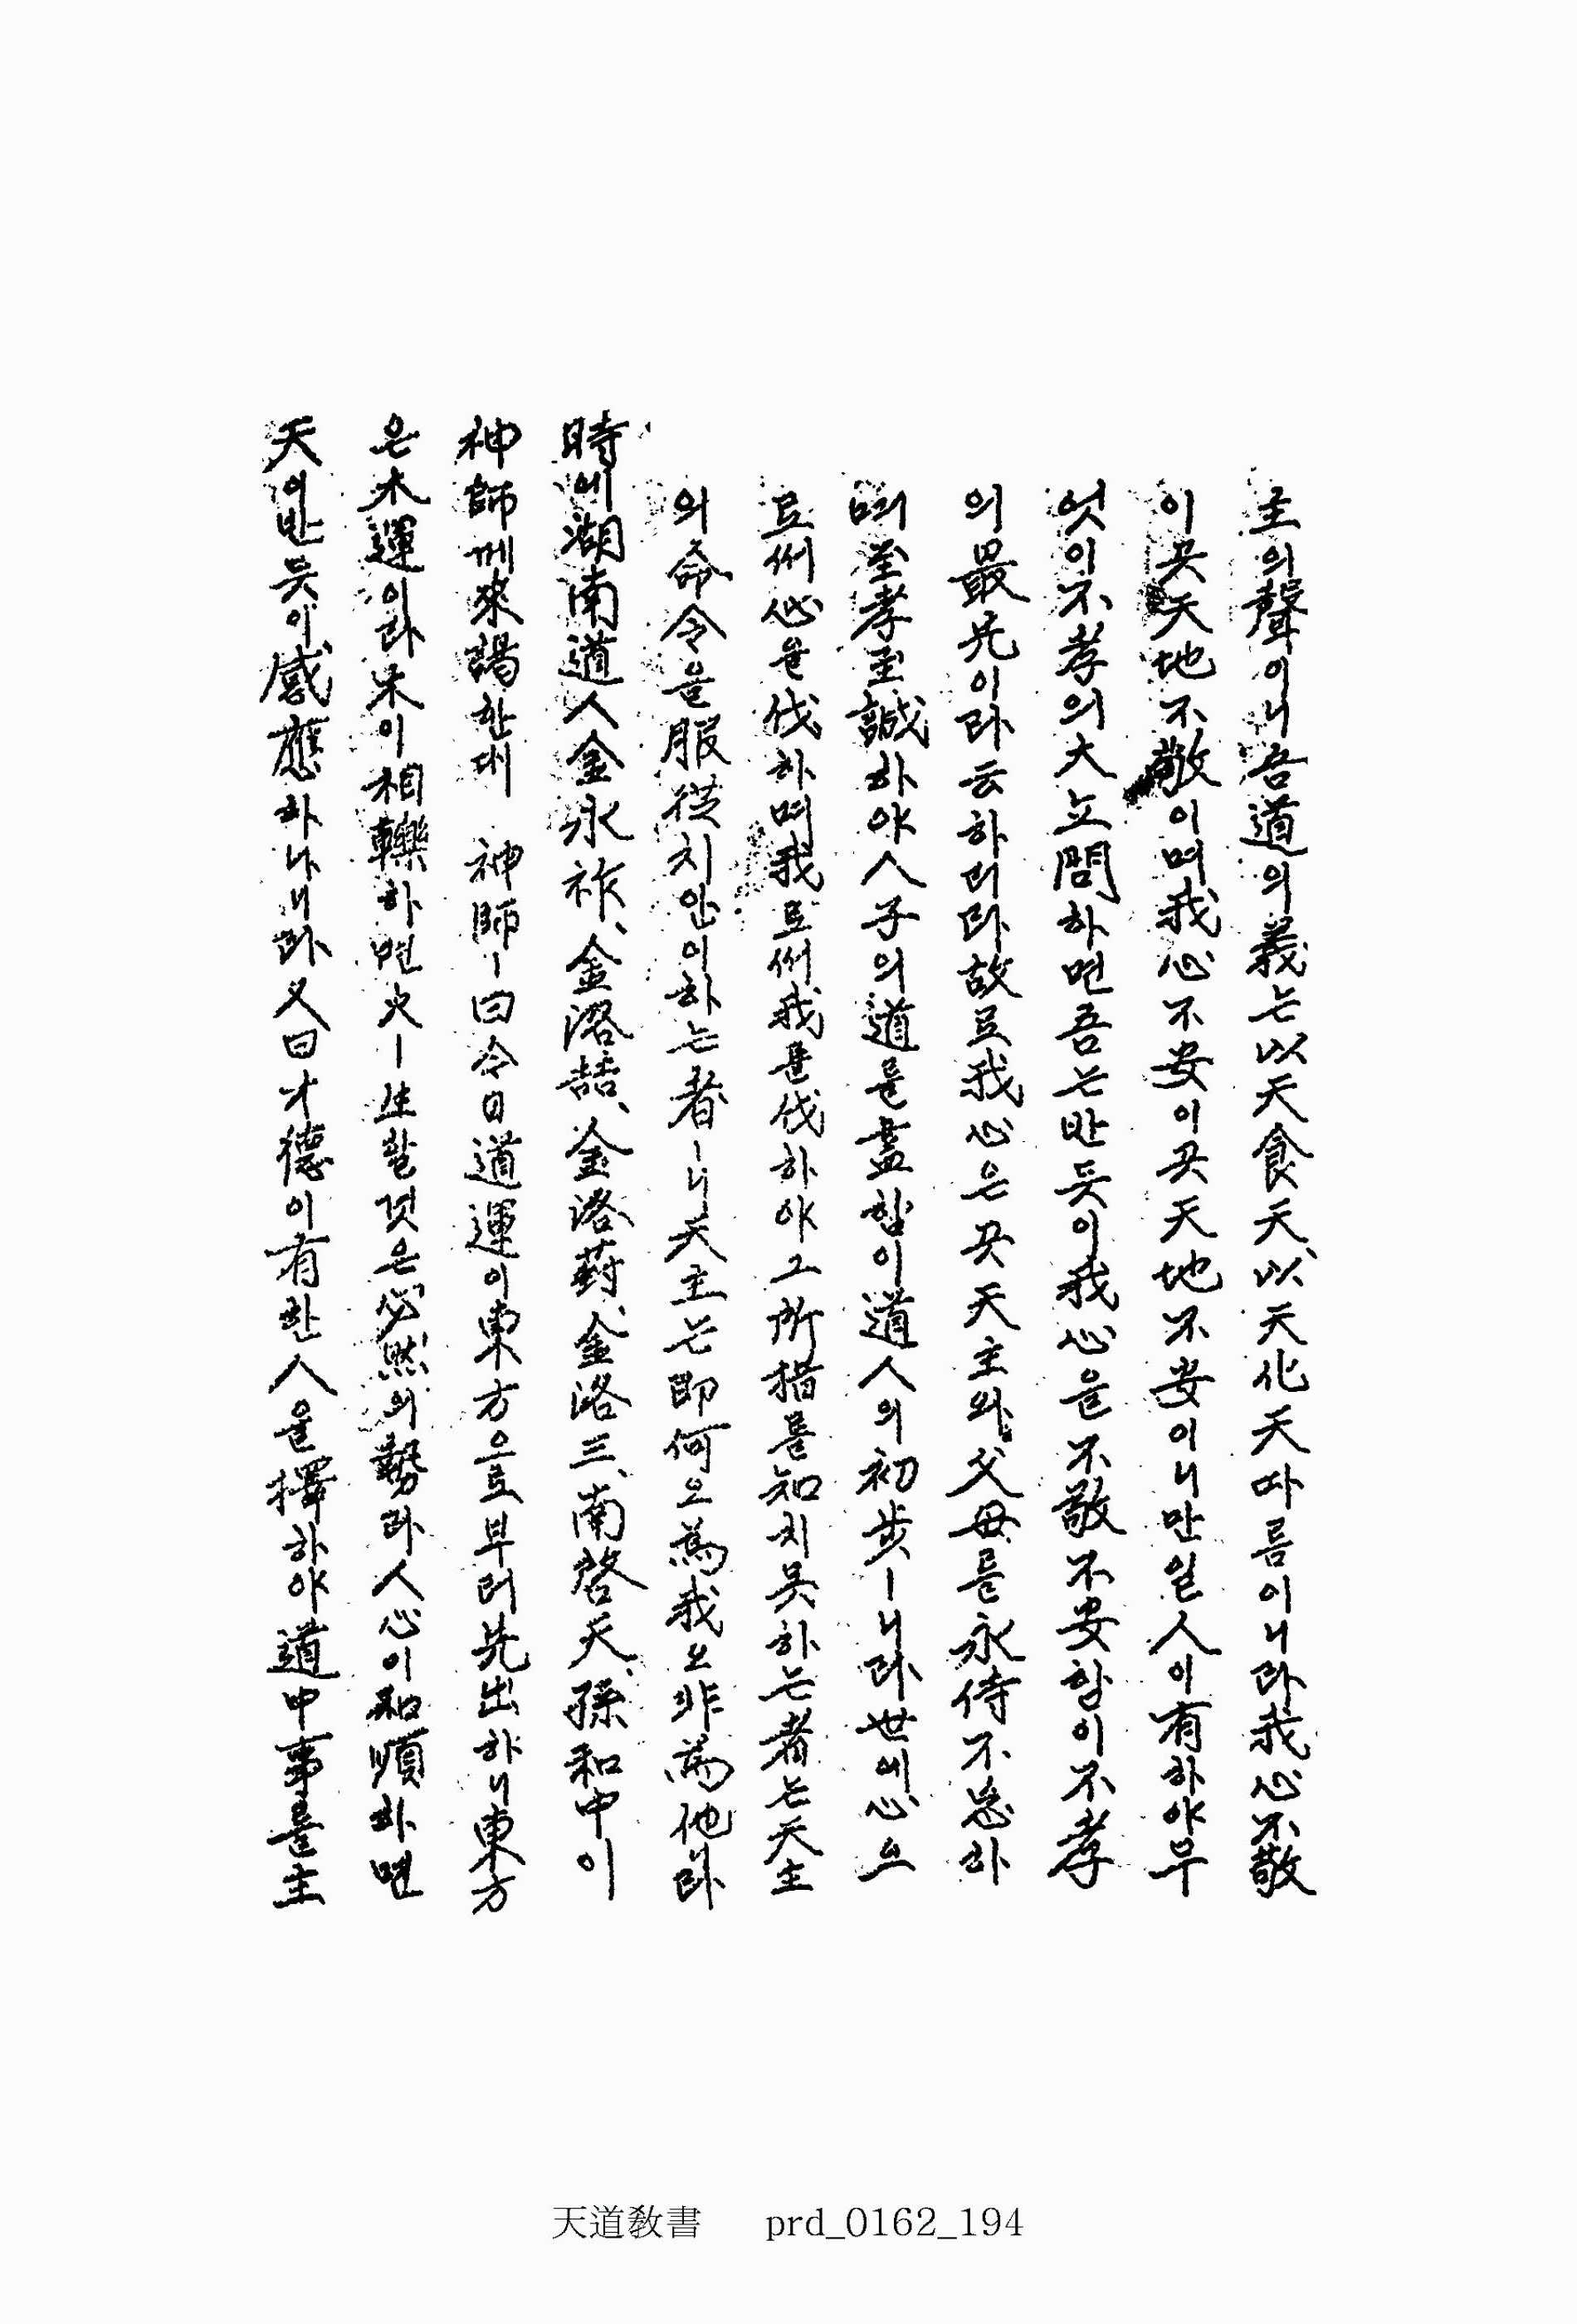 主의聲이니吾道의義는以天食天、以天化天따름이니라我心不敬
이곳天地不敬이며我心不安이곳天地不安이니만일人이有하야무
엇이不孝의大고問하면吾는반듯이我心을不敬不安함이不孝
의最先이라云하리라故로我心은곳天主와父母를永侍不忘하
며至孝至誠하야人子의道를盡함이道人의初步ㅣ니라世에心으
로써心을伐하며我로써我를伐하야그所措를知치못하는者는天主
의命令을服從치안이하는者ㅣ니天主는卽何오爲我오非爲他라
時에湖南道人金永祚、金洛喆、金洛葑、金洛三、南啓天、孫和中이
神師께來謁한대 神師ㅣ曰今日道運이東方으로부터先出하니東方
은木運이라木이相轢하면火ㅣ生할것은必然의勢라人心이和順하면
天이반듯이感應하나니라又曰才德이有한人을擇하야道中事를主
天道敎書 prd_0162_194